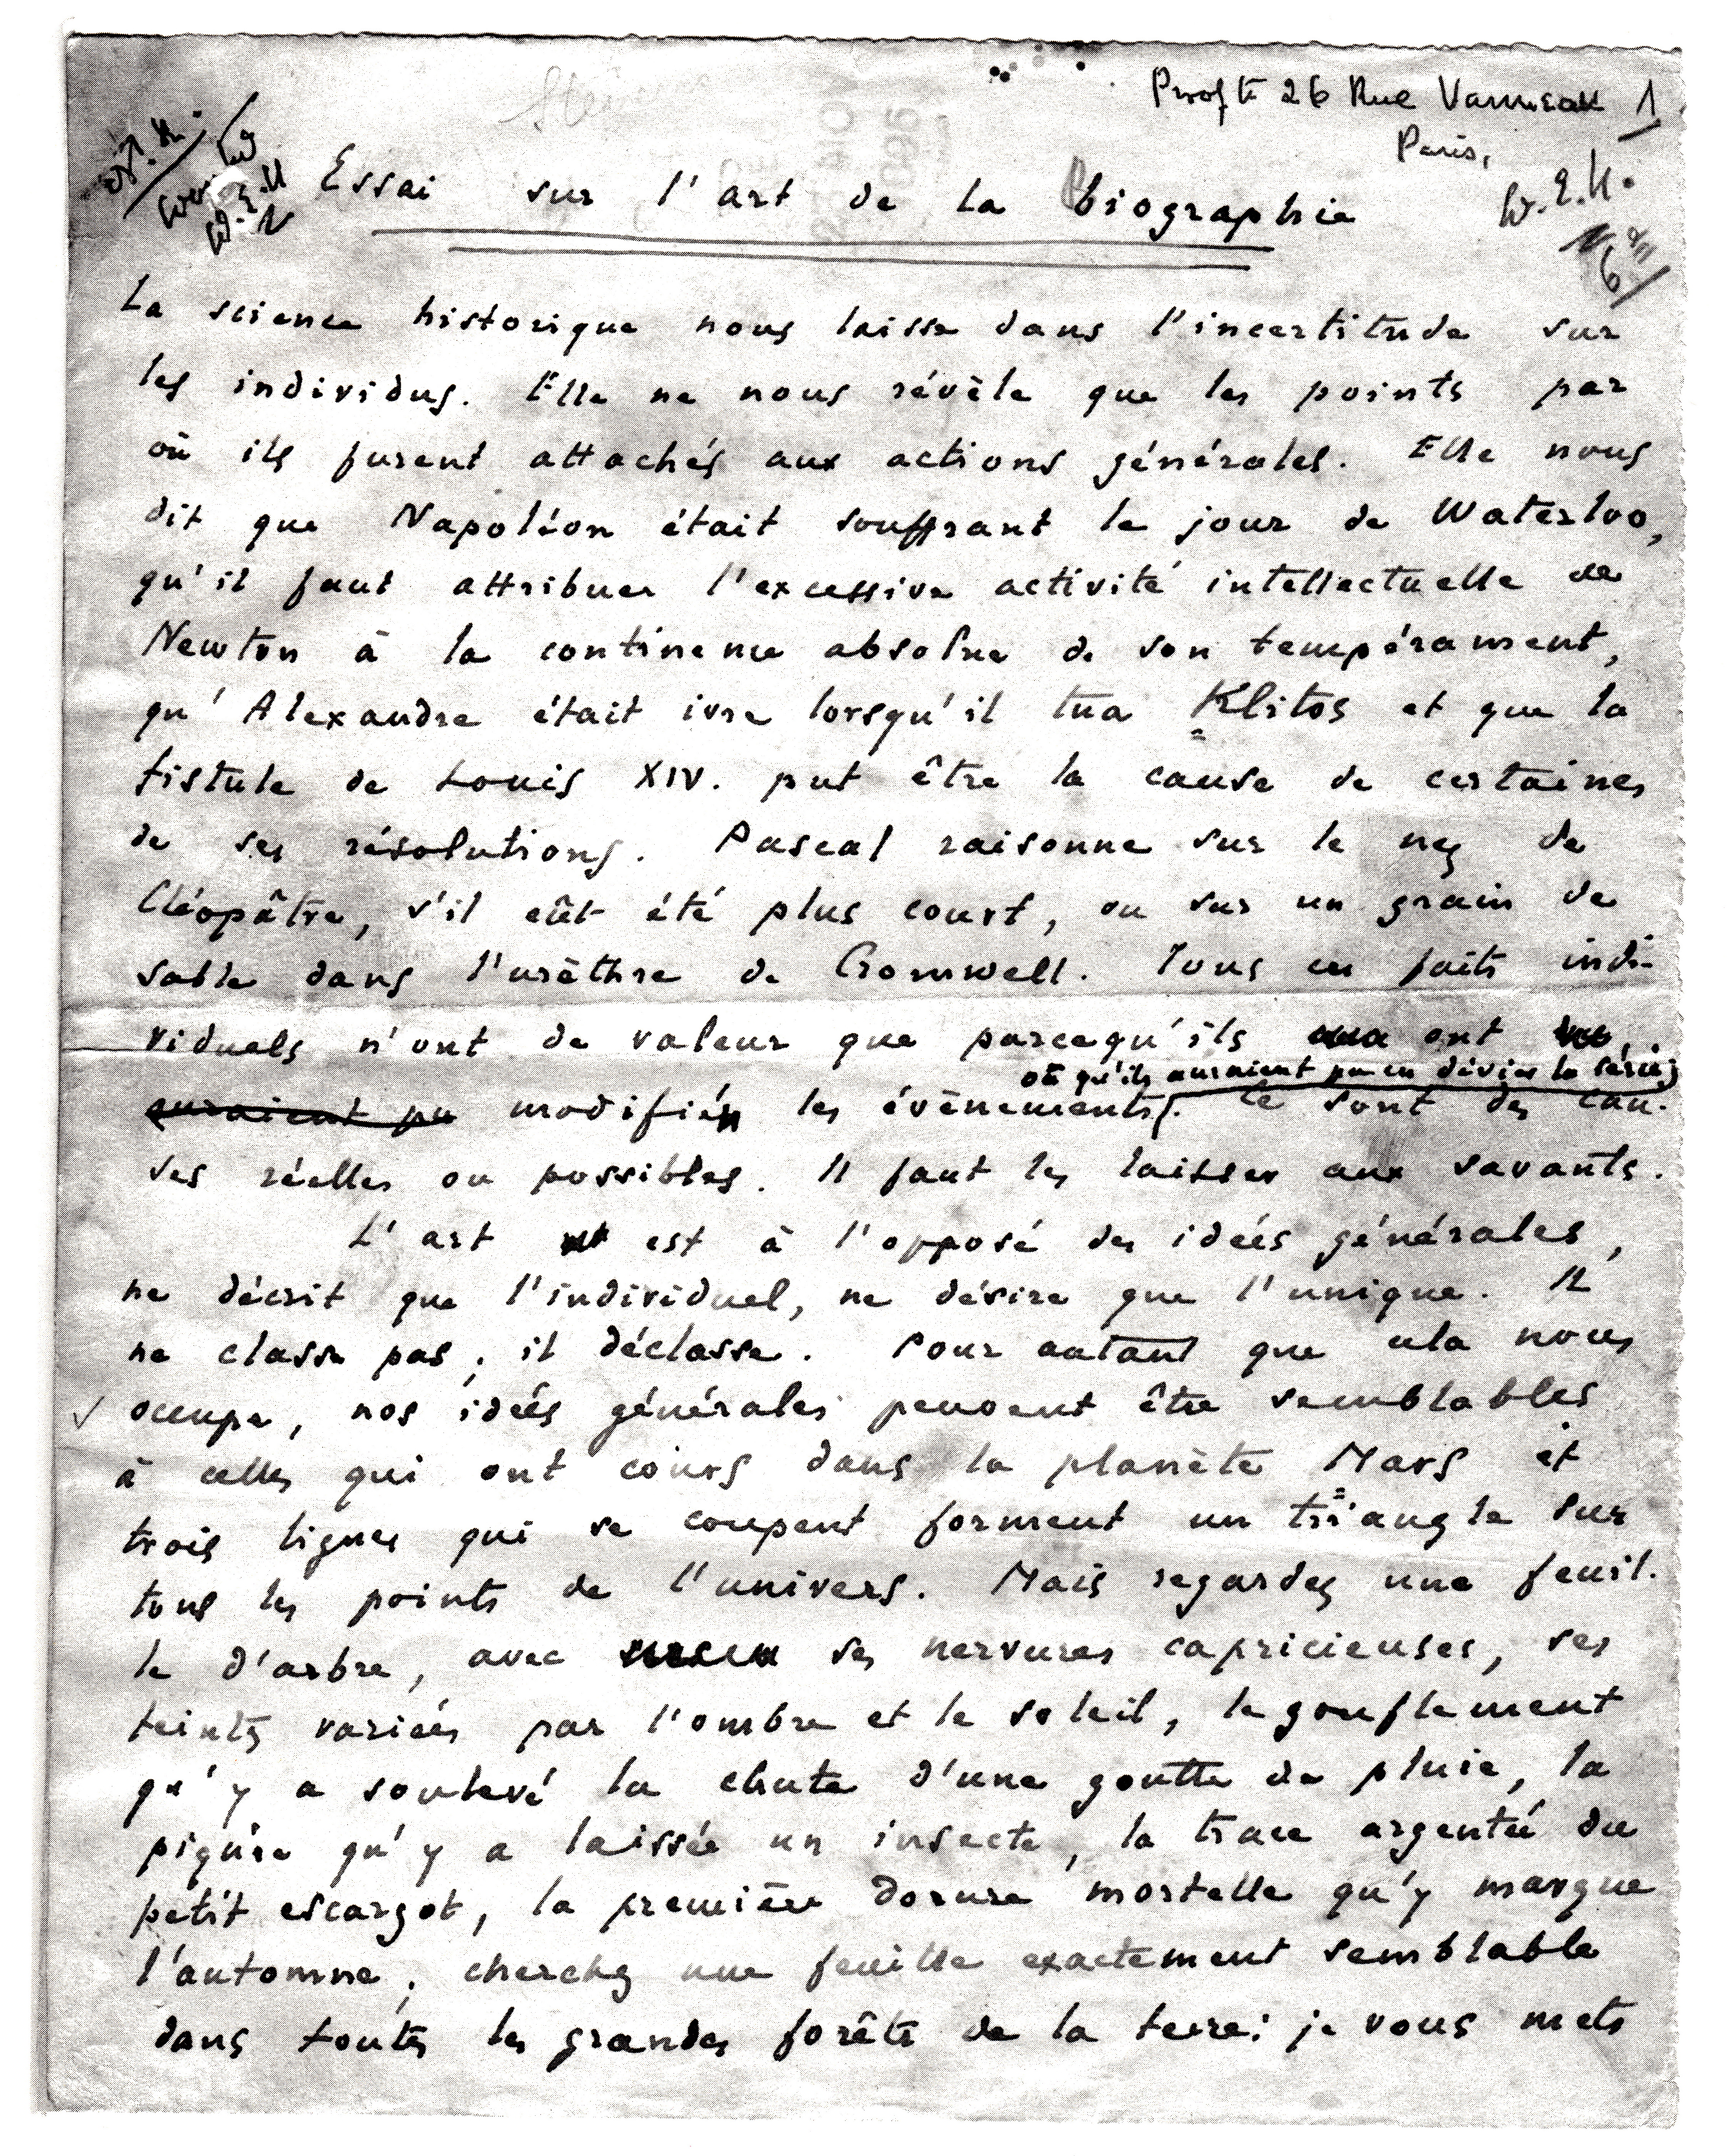 Proof to 26 Rue Vanneau 1
Paris,
W.E.H.
Essai sur l'art de la biographie
La science historique nous laisse dans l'incertitude sur
les individus. Elle ne nous révèle que les points par
où ils furent attachés aux actions générales. Elle nous
dit que Napoléon était souffrant le jour de Waterloo,
qu'il faut attribuer l'excessive activité intellectuelle de
Newton à la continence absolue de son tempérament,
qu'Alexandre était ivre lorsqu'il tua Klitos et que la
fistule de Louis XIV. put être la cause de certaines
de ses résolutions. Pascal raisonne sur le nez de
Cléopâtre, s'il eût été plus court, ou sur un grain de
sable dans l'urèthre de Cromwell. Tous ces faits indi-
viduels n'ont de valeur que parcequ'ils ont
où qu'ils auraient pu en dévier la série;
auraient pu modifié les évènements. Ce sont des cau-
ses réelles ou possibles. Il faut les laisser aux savants.
L'art est à l'opposé des idées générales,
ne décrit que l'individuel, ne désire que l'unique. Il
ne classe pas; il déclasse. Pour autant que cela nous
occupe, nos idées générales peuvent être semblables
à celles qui ont cours dans la planète Mars et
trois lignes qui se coupent forment un triangle sur
tous les points de l'univers. Mais regardez une feuil-
le d'arbre, avec ses nervures capricieuses, ses
teints variées par l'ombre et le soleil, le gonflement
qu'y a soulevé la chute d'une goutte de pluie, la
piqûre qu'y a laissée un insecte, la trace argentée du
petit escargot, la première dorure mortelle qu'y marque
l'automne; cherchez une feuille exactement semblable
dans toutes les grandes forêts de la terre: je vous mets